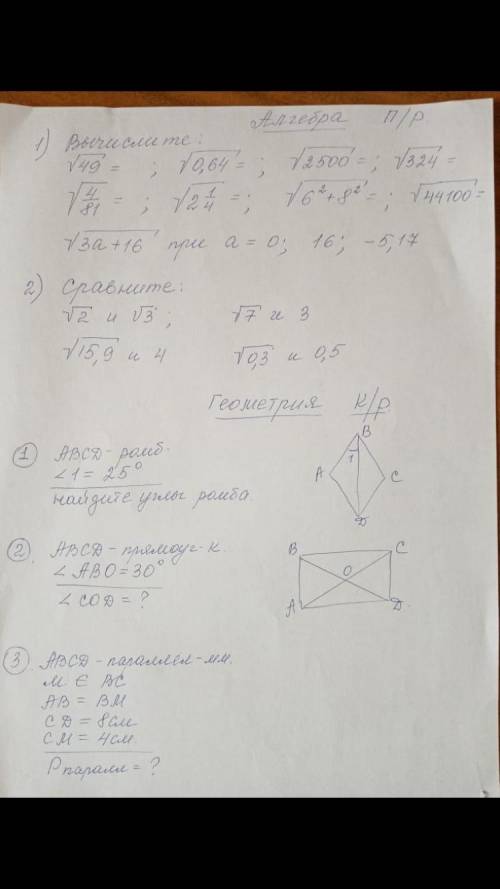 Алгебра П/р
1) Вычислите:
√49 = ; √0,64 = ; √2500 = ; √324 =
√4/81 = ; √2 1/4 = ; √6²+8² = ; √44100 =
√3a+16 при a = 0; 16; -5,17
2) Сравните:
√2 и √3; √7 и 3
√15,9 и 4 √0,3 и 0,5
Геометрия К/р.
① ABCD-ромб.
∠1 = 25°
найдите углы ромба
B
1
A C
D
② ABCD-прямоуг-к.
∠ABO = 30°
∠COD = ?
B C
O
A D
③ ABCD-параллел-мм.
M ∈ BC
AB = BM
CD = 8см
CM = 4см.
Pпаралл = ?